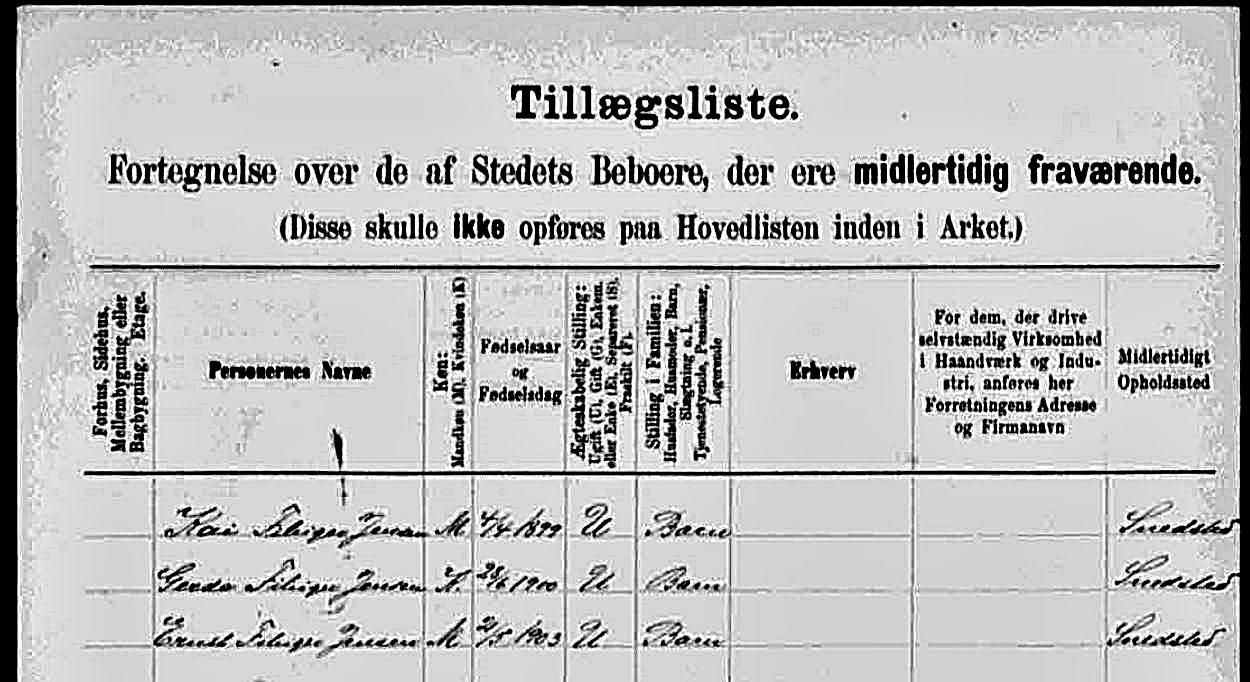 Tillægsliste.
Fortegnelse over de af Stedets Beboere, der ere midlertidig fraværende.
(Disse skulle ikke opføres paa Hovedlisten inden i Arket.)
Forhus, Sidehus,
Mellembygning eller
Bagbygning. Etage.
Personernes Navne
Køn:
Mandkøn (M). Kvindekøn (K)
Fødselsaar
og
Fødselsdag
Ægteskabelig Stilling:
Ugift (U), Gift (G), Enkem.
eller Enke (E), Separeret (S),
Fraskilt (F).
Stilling i Familien:
Husfader, Husmoder, Barn,
Slægtning o. l.
Tjenestetyende, Pensionær,
Logerende
Erhverv
For dem, der drive
selvstændig Virksomhed
i Haandværk og Indu-
stri, anføres her
Forretningens Adresse
og Firmanavn
Midlertidigt
Opholdssted
Kai Filuger Jensen M 4/4 1899 U Barn Snedsted
Gerda Jensen K. 1900 U Barn Snedsted
Ernst Jensen M 2/5 1903 U Barn Snedsted